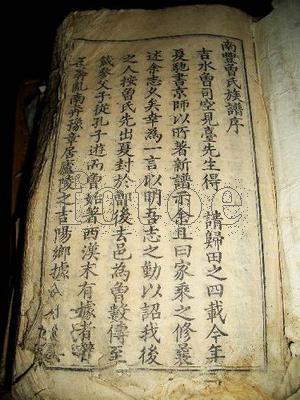 南豐曾氏族譜序
吉水曾司空見臺先生得 請歸田之四載今年
夏馳書京師以所著新譜示余且曰家乘之修曩
述余志久矣幸為一言以明吾志之勤以詔我後
之人按曾氏先出夏封於鄫後去邑為曾數傳至
蒧參父子從孔子遊而曾始著西漢末有據者避
莽亂南奔豫章居廬陵之吉陽鄉據